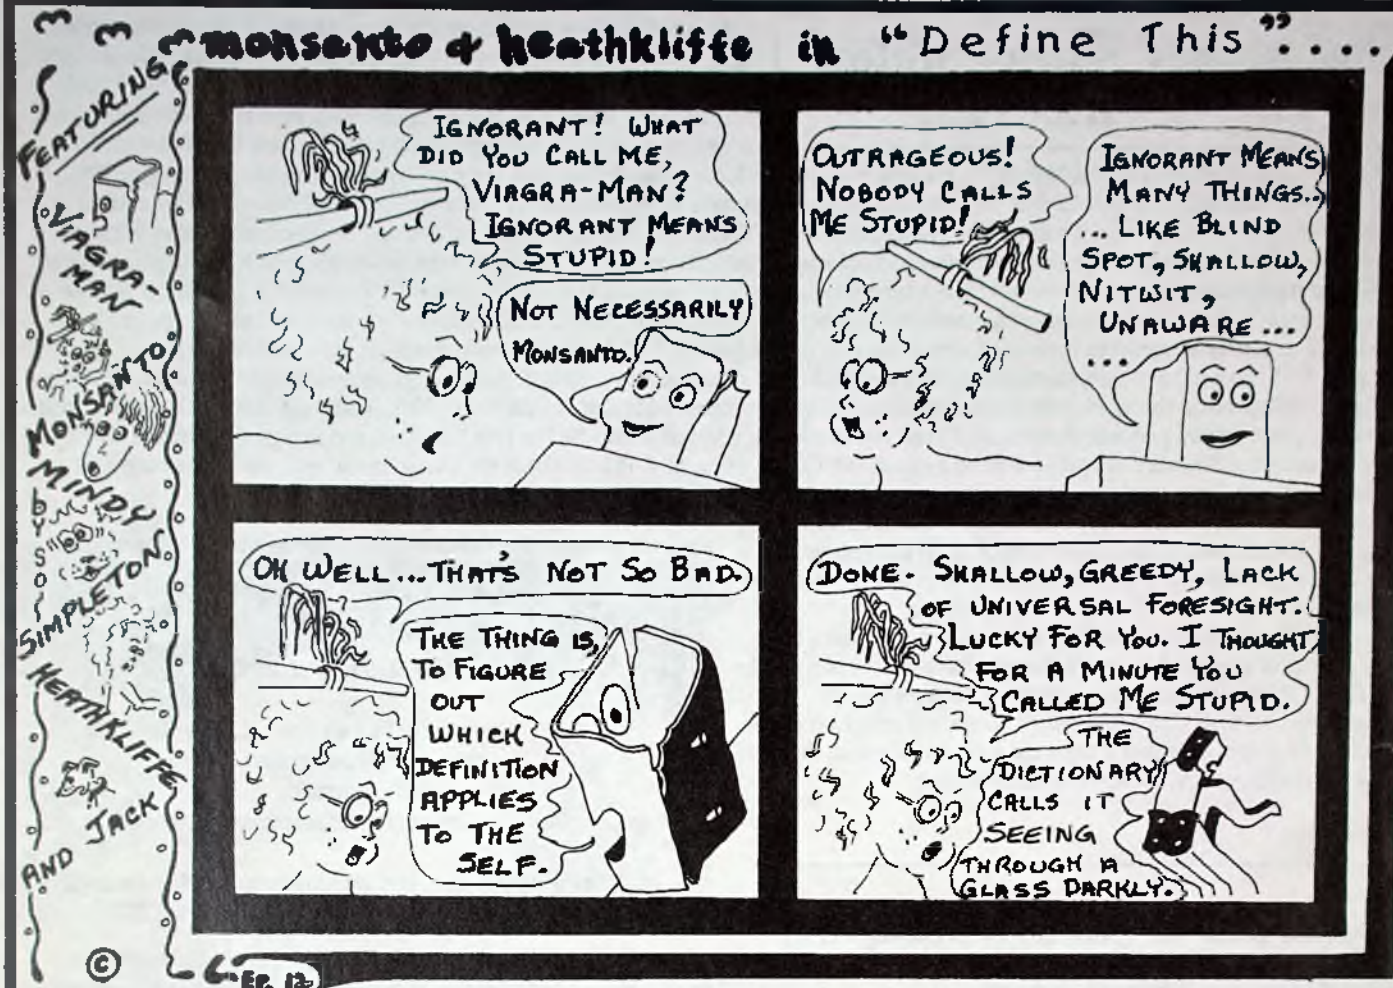 monsanto & heathkliffe in "Define This"....
FEATURING
VIAGRA-
MAN
MONSANTO
MINDY
by SOJ
SIMPLETON
HEATHKLIFFE
AND JACK
©
IGNORANT! WHAT
DID YOU CALL ME,
VIAGRA-MAN?
IGNORANT MEANS
STUPID!
NOT NECESSARILY
MONSANTO.
OUTRAGEOUS!
NOBODY CALLS
ME STUPID!
IGNORANT MEANS
MANY THINGS..
... LIKE BLIND
SPOT, SHALLOW,
NITWIT,
UNAWARE ...
...
OH WELL...THAT'S NOT SO BAD.
THE THING IS,
TO FIGURE
OUT
WHICH
DEFINITION
APPLIES
TO THE
SELF.
DONE. SHALLOW, GREEDY, LACK
OF UNIVERSAL FORESIGHT.
LUCKY FOR YOU. I THOUGHT
FOR A MINUTE YOU
CALLED ME STUPID.
THE
DICTIONARY
CALLS IT
SEEING
THROUGH A
GLASS DARKLY.
EP. 12